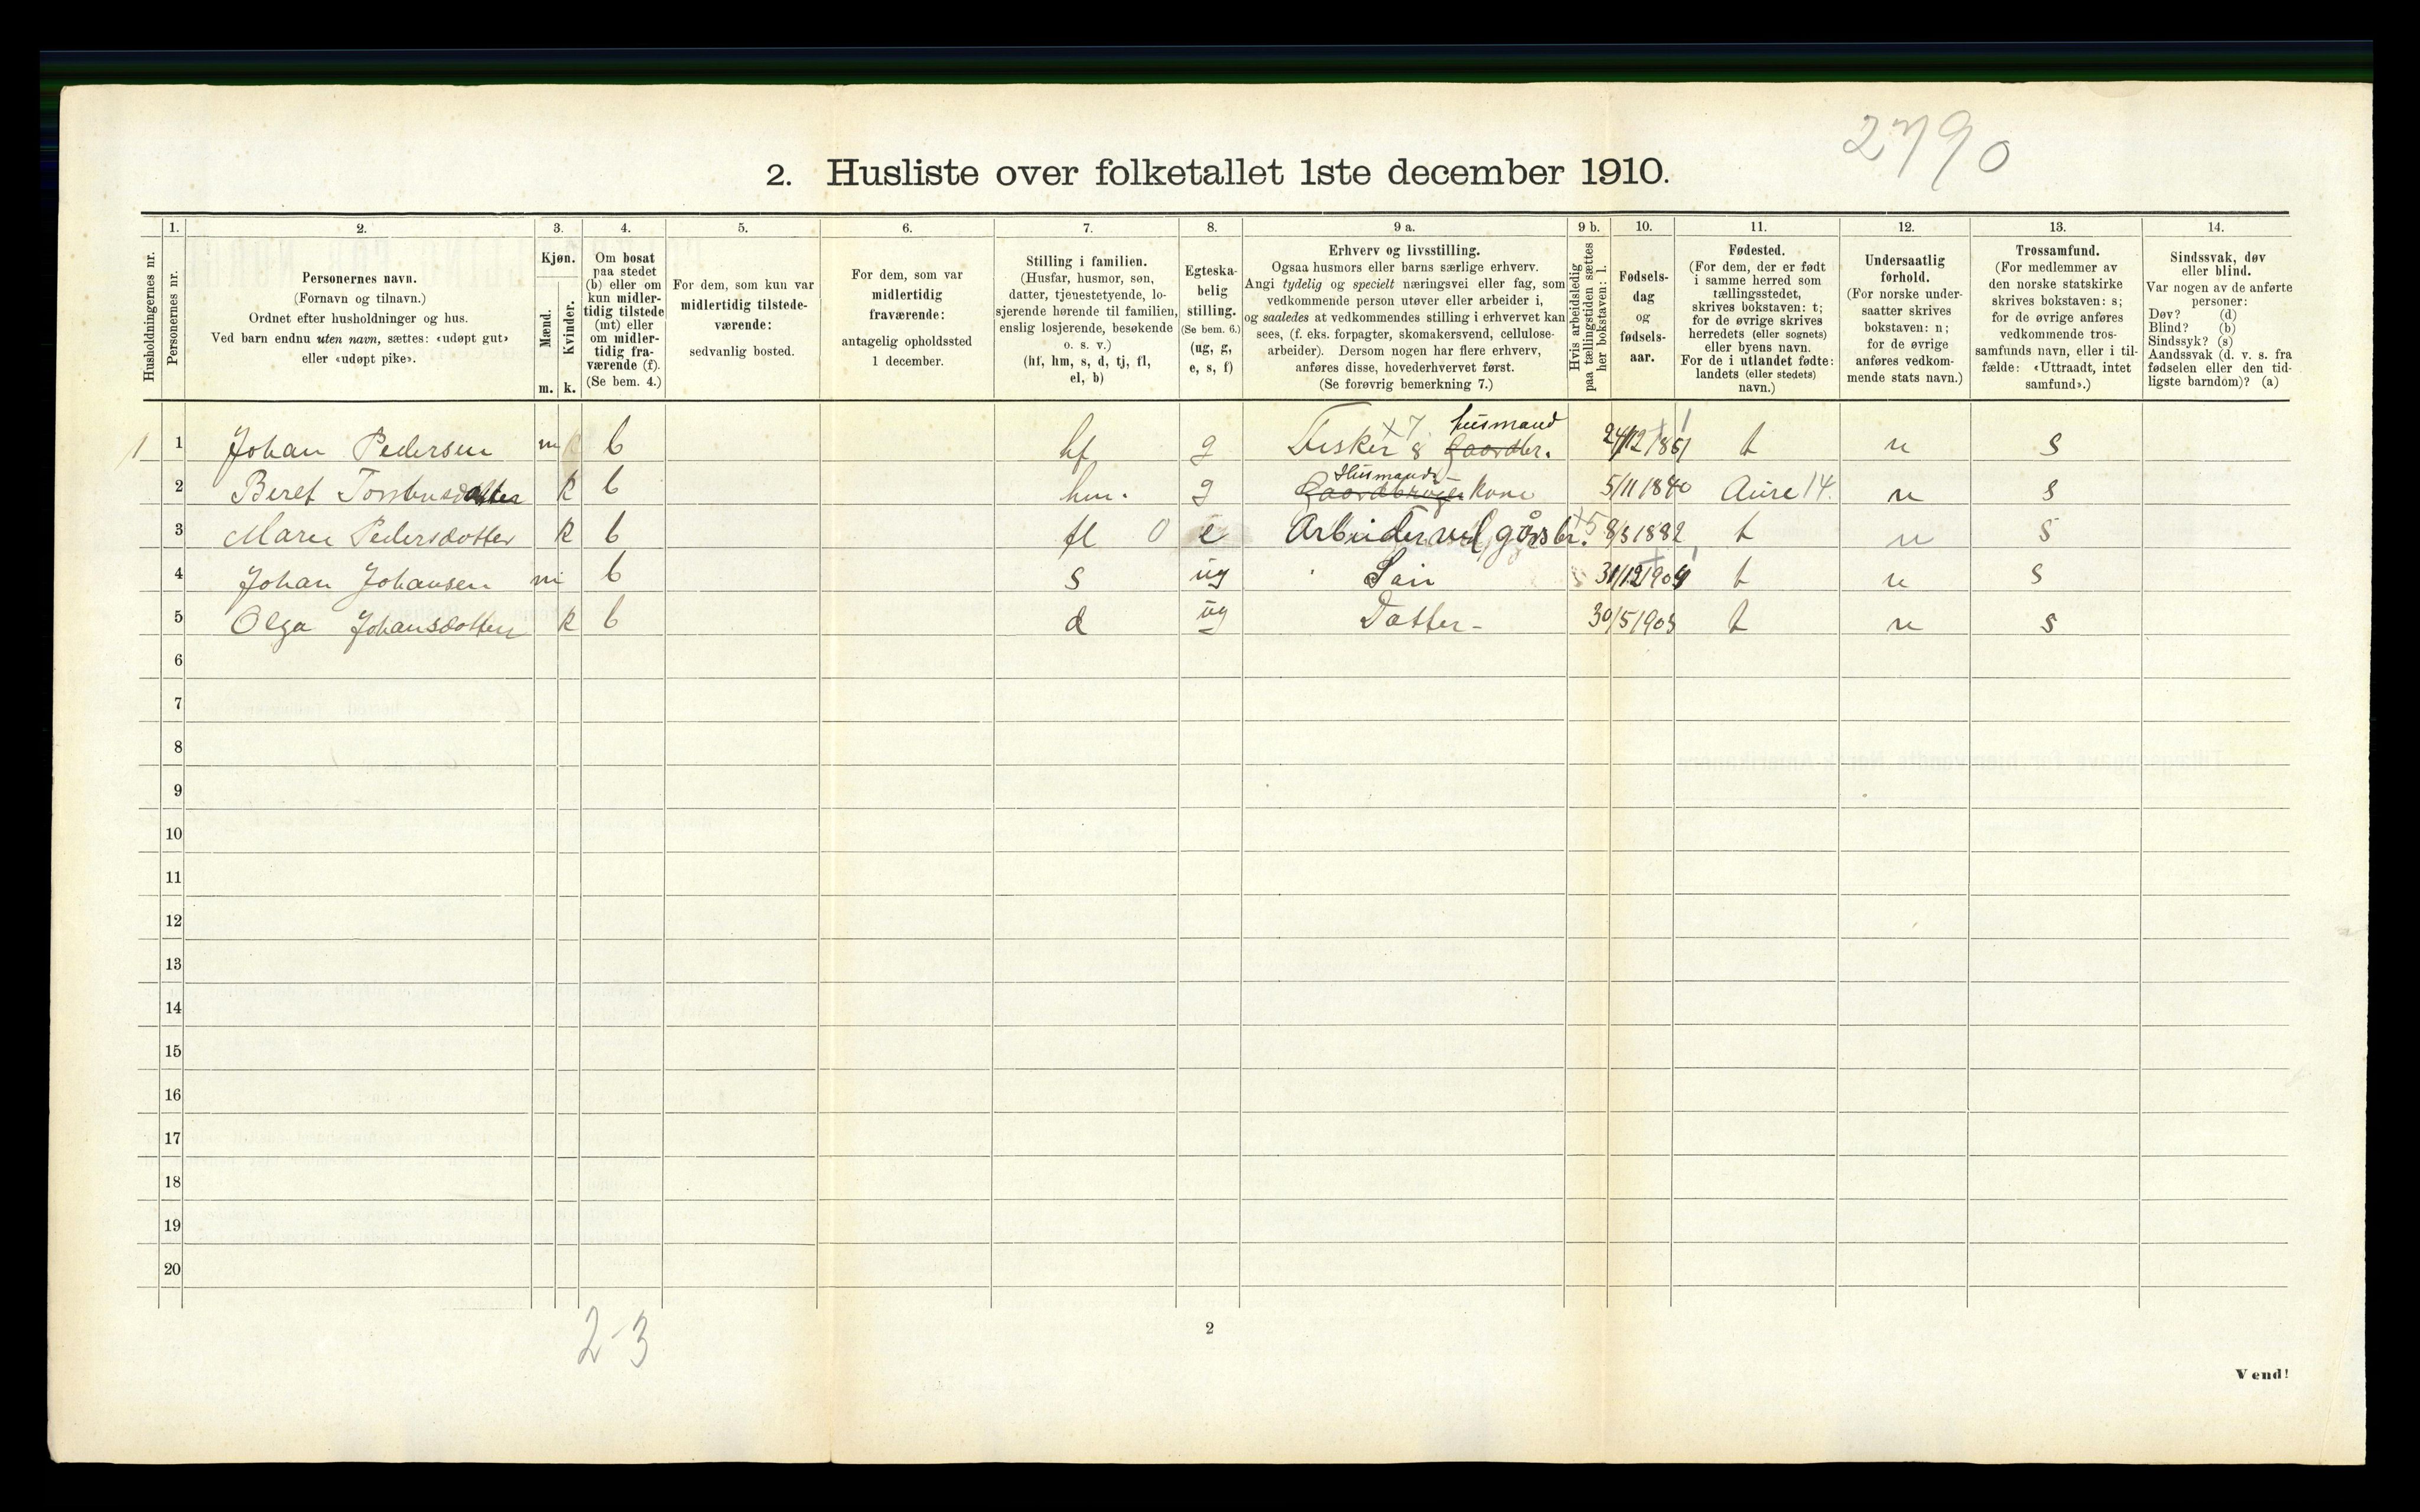 2790
2. Husliste over folketallet 1ste december 1910.
Husholdningernes nr.
1.
Personernes nr.
2.
Personernes navn.
(Fornavn og tilnavn.)
Ordnet efter husholdninger og hus.
Ved barn endnu uten navn, sættes: «udøpt gut»
eller «udøpt pike».
3.
Kjøn.
Mænd.
Kvinder.
m. k.
4.
Om bosat
paa stedet
(b) eller om
kun midler-
tidig tilstede
(mt) eller
om midler-
tidig fra-
værende (f).
(Se bem. 4.)
5.
For dem, som kun var
midlertidig tilstede-
værende:
sedvanlig bosted.
6.
For dem, som var
midlertidig
fraværende:
antagelig opholdssted
1 december.
7.
Stilling i familien.
(Husfar, husmor, søn,
datter, tjenestetyende, lo-
sjerende hørende til familien,
enslig losjerende, besøkende
o. s. v.)
(hf, hm, s, d, tj, fl,
el, b)
8.
Egteska-
belig
stilling.
(Se bem. 6.)
(ug, g,
e, s, f)
9 a.
Erhverv og livsstilling.
Ogsaa husmors eller barns særlige erhverv.
Angi tydelig og specielt næringsvei eller fag, som
vedkommende person utøver eller arbeider i,
og saaledes at vedkommendes stilling i erhvervet kan
sees, (f. eks. forpagter, skomakersvend, cellulose-
arbeider). Dersom nogen har flere erhverv,
anføres disse, hovederhvervet først.
(Se forøvrig bemerkning 7.)
9 b.
Hvis arbeidsledig
paa tællingstiden sættes
her bokstaven: l.
10.
Fødsels-
dag
og
fødsels-
aar.
11.
Fødested.
(For dem, der er født
i samme herred som
tællingsstedet,
skrives bokstaven: t;
for de øvrige skrives
herredets (eller sognets)
eller byens navn.
For de i utlandet fødte:
landets (eller stedets)
navn.)
12.
Undersaatlig
forhold.
(For norske under-
saatter skrives
bokstaven: n;
for de øvrige
anføres vedkom-
mende stats navn.)
13.
Trossamfund.
(For medlemmer av
den norske statskirke
skrives bokstaven: s;
for de øvrige anføres
vedkommende tros-
samfunds navn, eller i til-
fælde: «Uttraadt, intet
samfund».)
14.
Sindssvak, døv
eller blind.
Var nogen av de anførte
personer:
Døv? (d)
Blind? (b)
Sindssyk? (s)
Aandssvak (d. v. s. fra
fødselen eller den tid-
ligste barndom)? (a)
1 1 Johan Pedersen m b hf g Fisker & husmand t n s
2 Beret k b hm. g Husmands- kone 5/11 1840 Aure 14. n s
3 Maren Pedersdotter k b fl 0 e Arbeider ved gårsbr. 8/3 1882 t n s
4 Johan Johansen m b s ug Søn t n s
5 Olga Johansdotter k b d ug Datter- t n s
6
7
8
9
10
11
12
13
14
15
16
17
18
19
20
2-3
2
Vend!